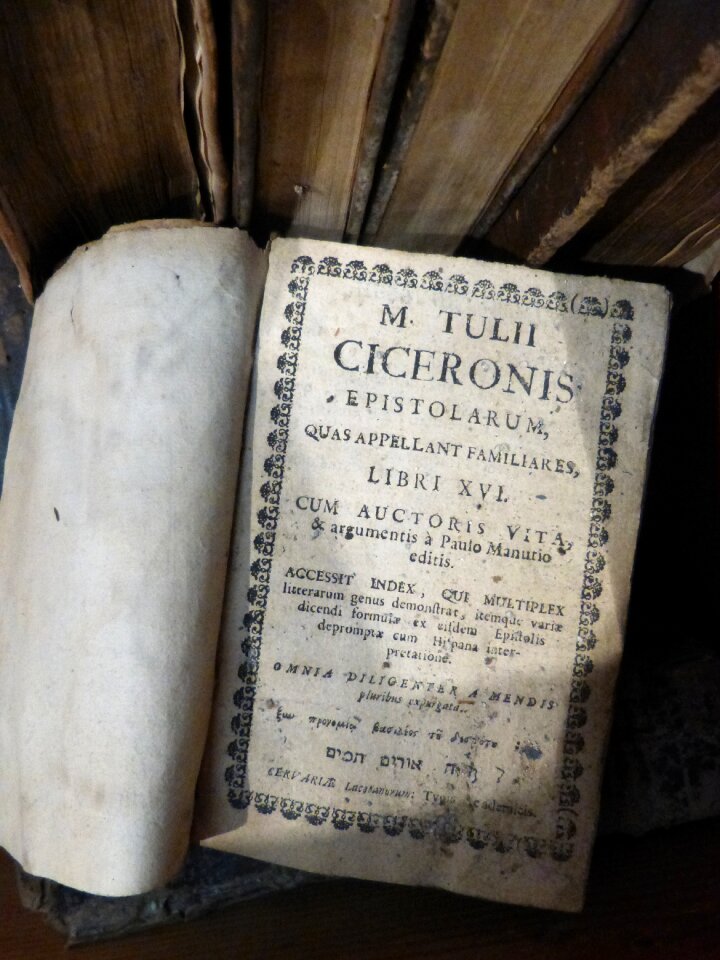 M. TULII
CICERONIS
EPISTOLARUM,
QUAS APPELLANT FAMILIARES,
LIBRI XVI.
CUM AUCTORIS VITA,
& argumentis à Paulo Manutio
editis.
ACCESSIT INDEX, QUI MULTIPLEX
litterarum genus demonſtrat, itemque variæ
dicendi formulæ ex eiſdem Epiſtolis
depromptæ cum Hiſpana inter-
pretatione.
OMNIA DILIGENTER A MENDIS
pluribus expurgata.
προνομίῳ βασιλέος τοῦ
אורים
CERVARIÆ Lacetanorum: Typis Academicis.